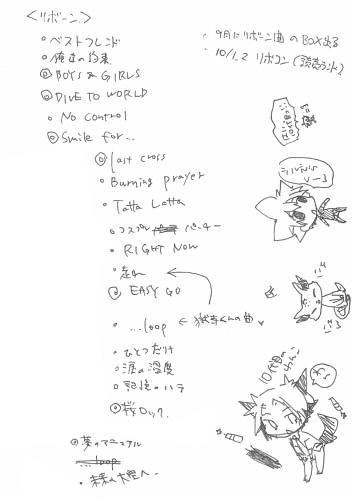 ＜リボーン＞
・ベストフレンド
・俺達の約束
◎BOYS & GIRLS
◎DIVE TO WORLD
・No control
◎Smile for...
◎Last cross
・Burning prayer
・Tatta Latta
・コスプレパーチー
・RIGHT NOW
・走れ
◎EASY GO
・...loop ← 獄寺くんの曲♥
・ひとつだけ
・涙の温度
・記憶のハテ
◎桜ロック.
◎夢のマニュアル
...loop
・未来の大空へ
・9月にリボーン曲のBOX出る
・10/1.2 リボコン (読売ランド)
10代目